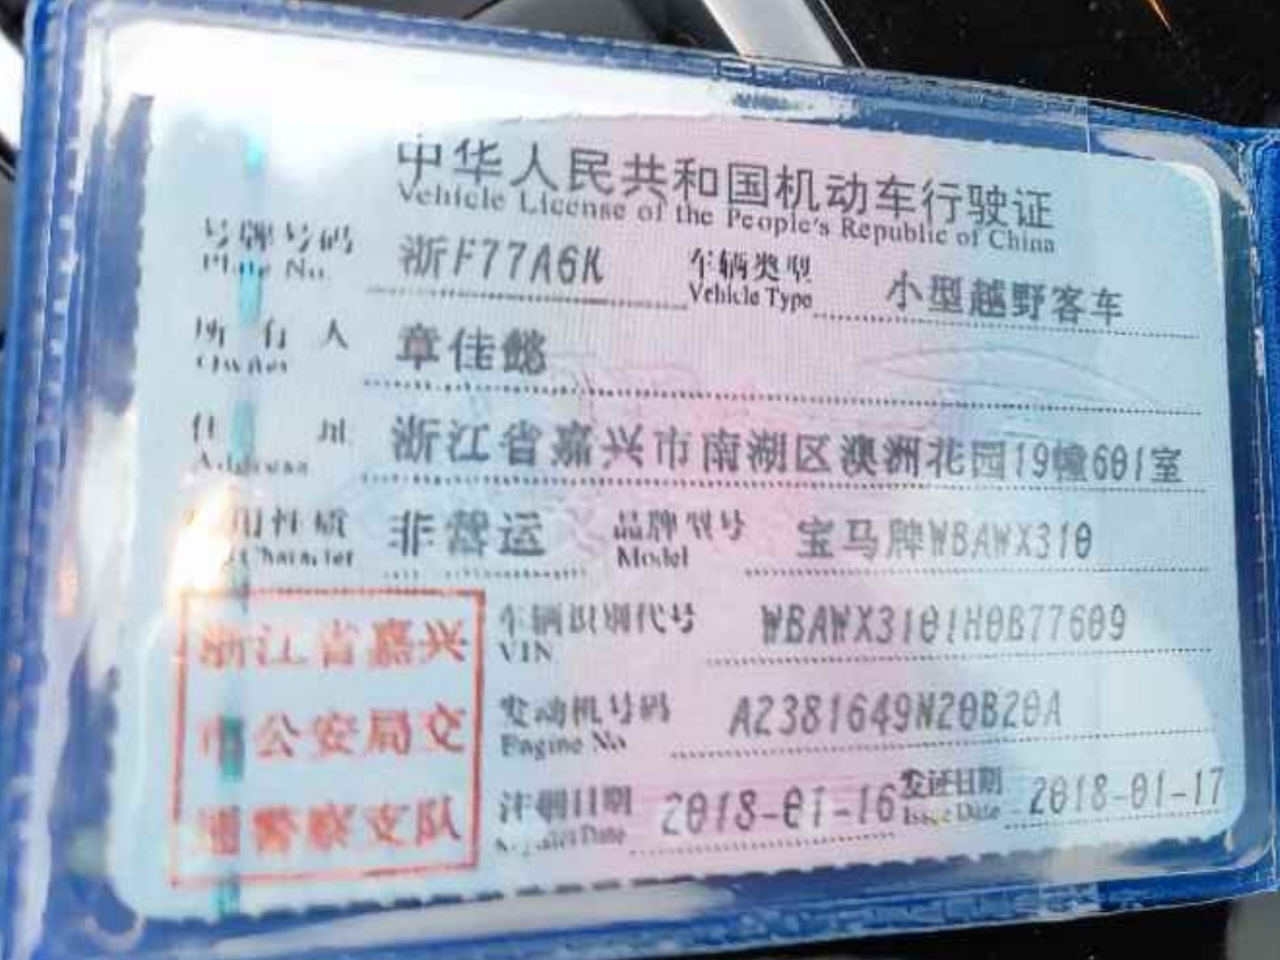 中华人民共和国机动车行驶证
Vehicle License of the People's Republic of China
号牌号码 浙F77A6K 车辆类型 小型越野客车
Plate No. Vehicle Type
所有人 章佳懿
Owner
住址 浙江省嘉兴市南湖区澳洲花园19幢601室
Address
用性质 非营运 品牌型号 宝马牌WBAWX310
Character Model
浙江省嘉兴
市公安局交
通警察支队
车辆识别代号 WBAWX3101H0B77609
VIN
发动机号码 A2381649N20B20A
Engine No
注册日期 2018-01-16 发证日期 2018-01-17
Date Issue Date